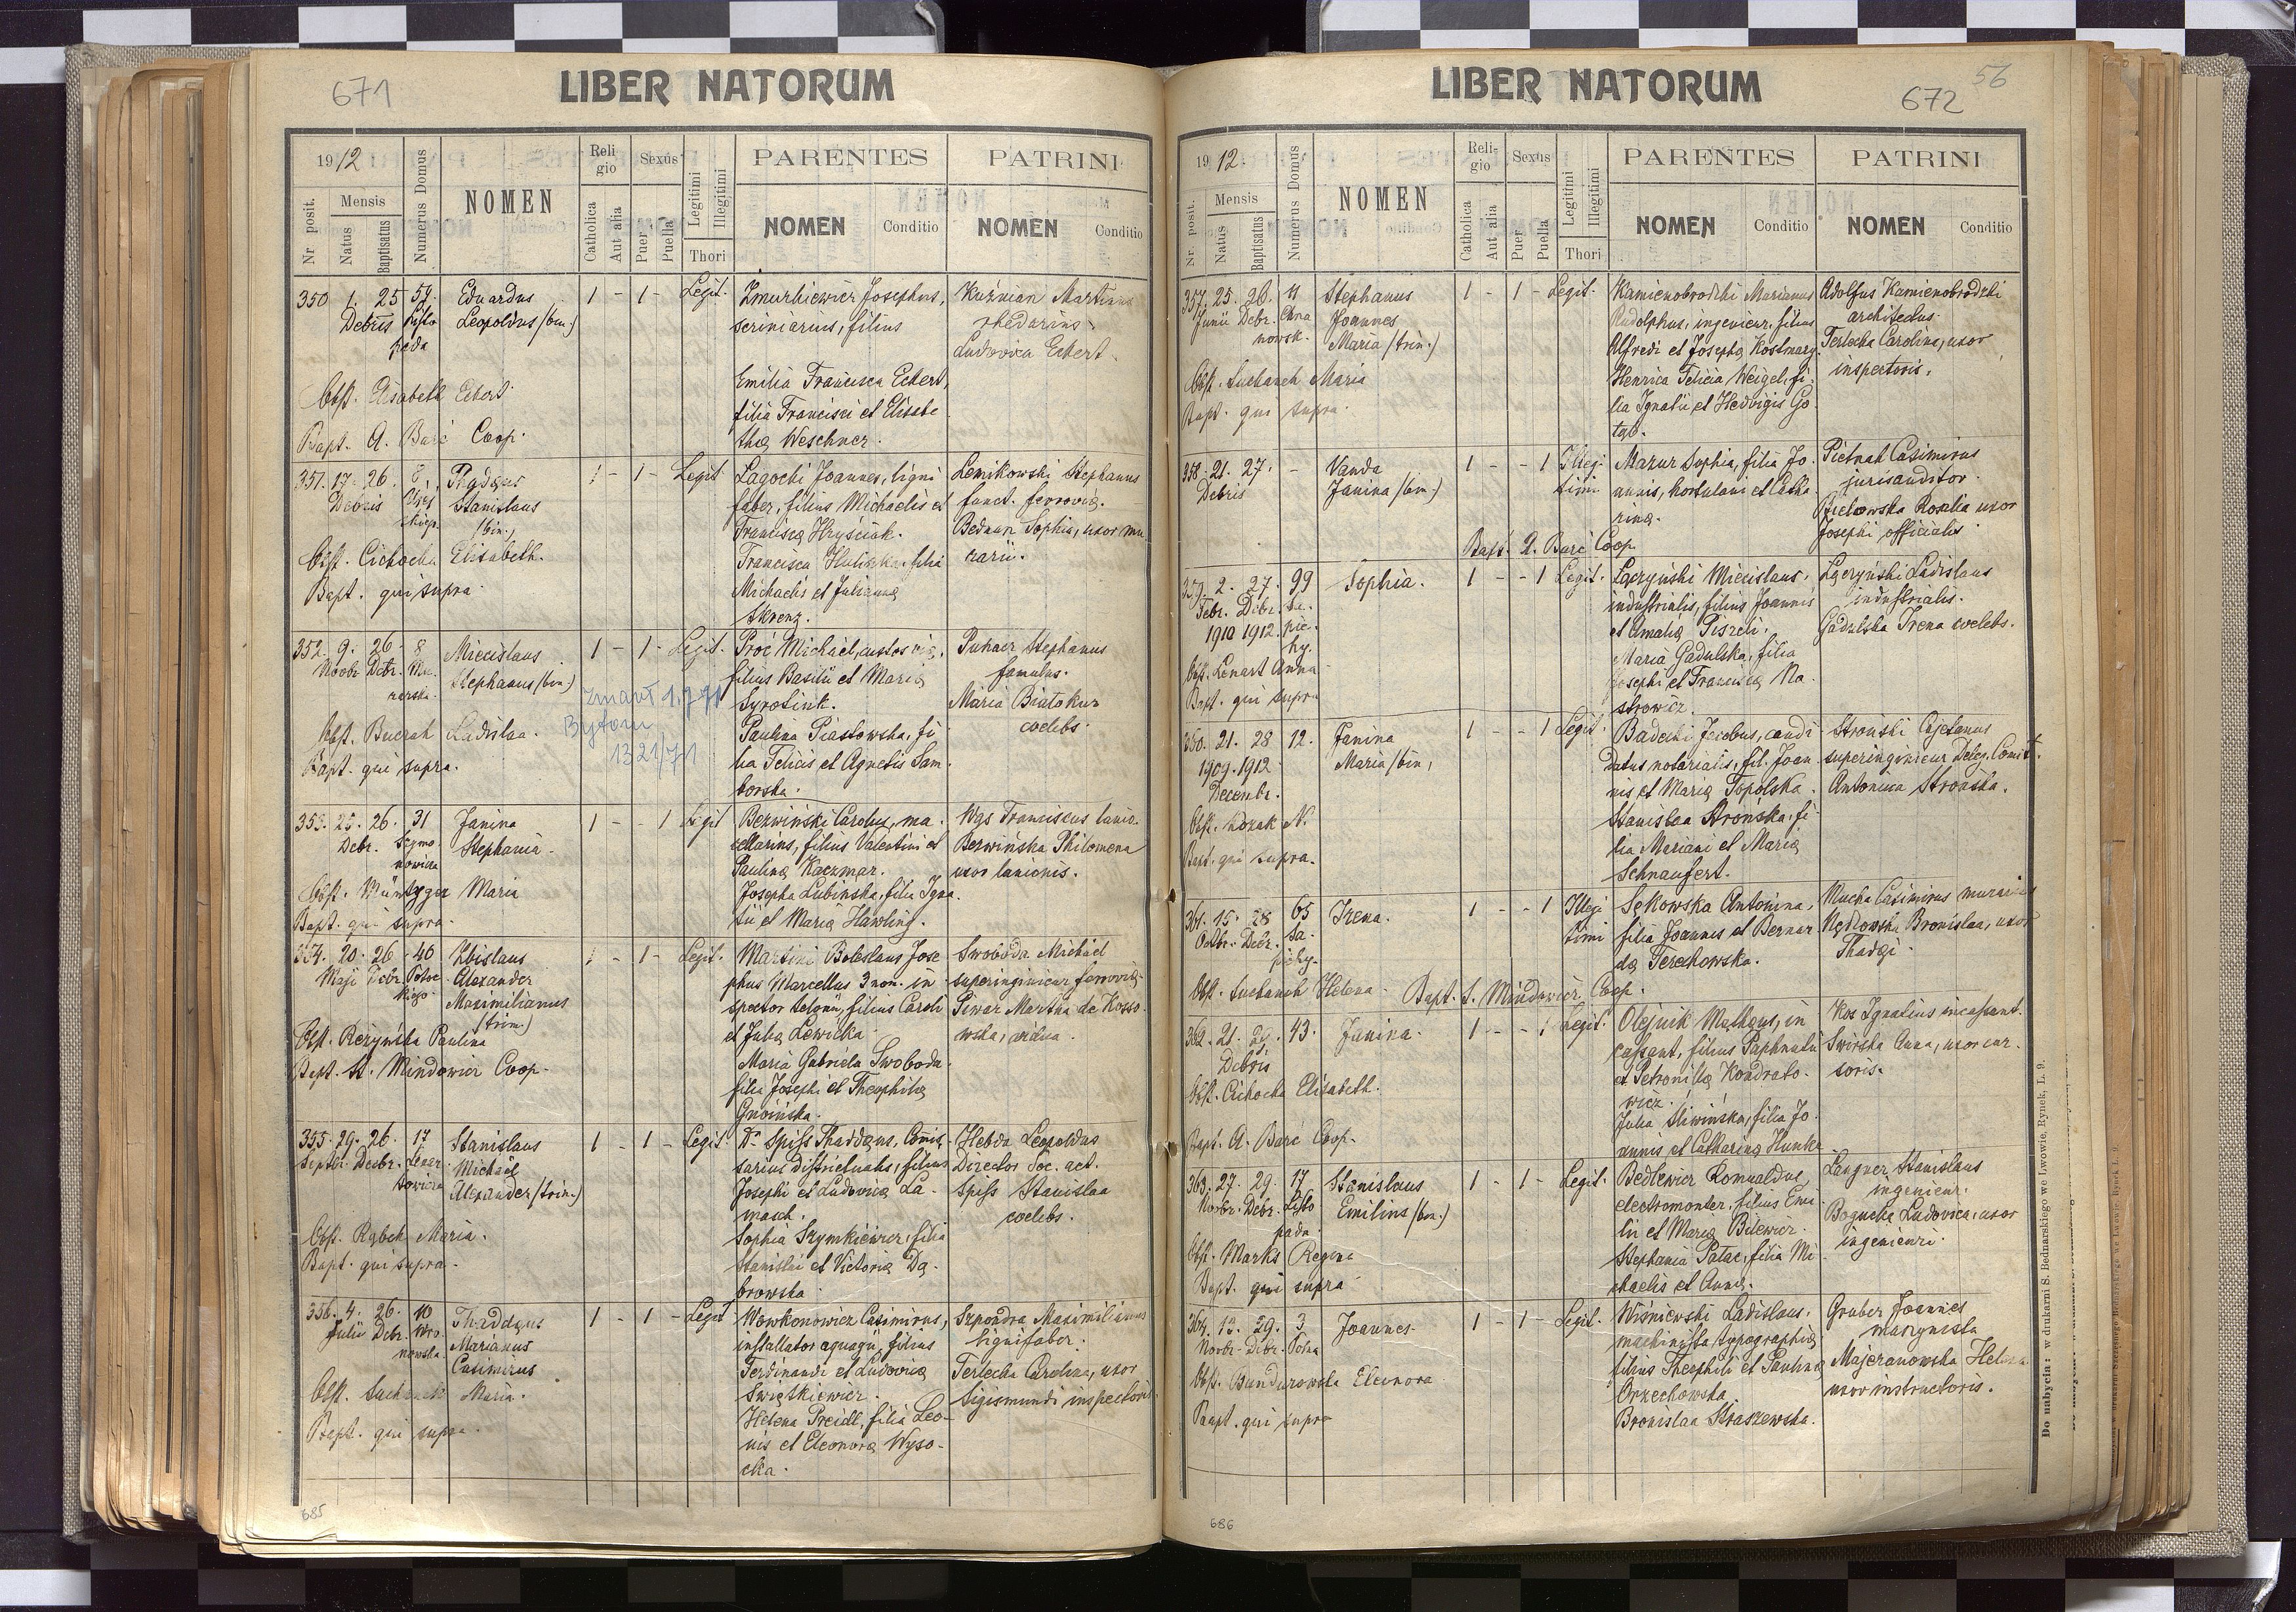 671
LIBER NATORUM
1912
Mensis
Nr posit.
Natus
Baptisatus
Numerus Domus
NOMEN
Religio
Catholica
Aut alia
Sexus
Puer
Puella
Legitimi
Illegitimi
Thori
PARENTES
NOMEN Conditio
PATRINI
NOMEN Conditio
350 1. 25 Debris
Eduardus
Leopoldus /bin./
1 - 1 - Legit.
Żmurkiewicz Josephus,
scriniarius, filius
Emilia Francisca Eckert,
filia Francisci et Elisabe
thæ Weschner.
Kuźnian Martinus
rhedarius
Ludovica Eckert.
Obst. Elisabeth Eckert
Bapt. A. Barć Coop.
351. 17. 26. Debris
Thadæus
Stanislaus
/bin./
1 - 1 - Legit
Łagocki Joannes, ligni
faber, filius Michaelis et
Franciscæ Hryściak.
Francisca Huliszka, filia
Michaelis et Julianna
Skrenz.
Lenikowski Stephanus
funct. ferroviæ.
Bednarz Sophia, uxor mu
rarii.
Obst. Cichocka Elisabeth.
Bapt. qui supra
352. 9. 26. 8
Novbr. Debr.
Miecislaus
Stephanus /bin./
1 - 1 - Legit.
Proć Michael, custos viæ,
filius Basilii et Mariæ
Syrotiuk.
Paulina Piastowska, fi
lia Felicis et Agnetis Sam
borska.
Puhacz Stephanus
famulus.
Maria Białokur
coelebs.
Zmarł 1.
Bytom
1321/71
Obst. Buczak Ladislaa.
Bapt. qui supra.
353. 25. 26. 31
Debr. Szymo
nowicza
Janina
Stephania
1 - - 1 Legit
Berwiński Carolus, ma
cellarius, filius Valentini et
Paulinæ Kaczmar.
Josepha Lubińska, filia Igna
tii et Mariæ Hawling.
Wąs Franciscus lanio.
Berwińska Philomena
uxor lanionis.
Obst. Müntzger Maria
Bapt. qui supra.
354. 20. 26. 40
Maji Debr. Potoc
kiego
Zbislaus
Alexander
Maximilianus
/trin./
1 - 1 - Legit.
Martini Boleslaus Jose
phus Marcellus 3 nom. in
spector telonii, filius Caroli
et Julia Lewicka
Maria Gabriela Swoboda
filia Josephi et Theophilæ
Gnoińska.
Swoboda Michael
superingenieur ferroviæ
Piwar Martha de Kosso
wska, vidua.
Obst. Reżyńska Paulina
Bapt. St. Mindowicz Coop.
355. 29. 26. 17
Septbr. Decbr. Lenar
towicza
Stanislaus
Michaël
Alexander /trin./
1 - 1 - Legit
Dr Spiss Thaddæus, Comis
sarius districtualis, filius
Josephi et Ludovicæ La
masch.
Sophia Szymkiewicz, filia
Stanislai et Victoriæ Dą
browska
Hebda Leopoldus
Director Soc. act.
Spiss Stanislaa
coelebs.
Obst. Rąbek Maria.
Bapt. qui supra.
356. 4. 26. 10
Julii Debr. Wro
nowska
Thaddæus
Marianus
Casimirus
1 - 1 - Legit
Wowkonowicz Casimirus,
installator aquagii, filius
Ferdinandi et Ludovicæ
Święskiewicz.
Helena Preidl, filia Leo
nis et Eleonoræ Wyso
cka.
Szpondra Maximilianus
lignifaber.
Terlecka Carolina, uxor
Sigismundi inspectoris.
Obst. Suchanek Maria.
Bapt. qui supra.
685
56
672
LIBER NATORUM
1912.
Mensis
Nr posit.
Natus
Baptisatus
Numerus Domus
NOMEN
Religio
Catholica
Aut alia
Sexus
Puer
Puella
Legitimi
Illegitimi
Thori
PARENTES
NOMEN Conditio
PATRINI
NOMEN Conditio
357. 25. 26. 11
Junii Debr. Chrza
nowsk.
Stephanus
Joannes
Maria /trin./
1 - 1 - Legit.
Kamienobrodzki Marianus
Rudolphus, ingenieur, filius
Alfredi et Josephæ Kostmary.
Henrica Felicia Weigel, fi
lia Ignatii et Hedvigis Go
tąb.
Adolfus Kamienobrodzki
architectus.
Terlecka Carolina, uxor
inspectoris.
Obst. Suchanek Maria
Bapt. qui supra.
358. 21. 27. -
Debris
Vanda
Janina /bin./
1 - - 1 Illegi
timi
Mazur Sophia, filia Jo
annis, hortulani et Catha
rinæ.
Pietnak Casimirus
jurisauditor.
Bielowska Rosalia uxor
Josephi officialis.
Bapt. A. Barć Coop.
359. 2. 27. 99
Febr. Debr. Sa
1910 1912. pie
hy.
Sophia.
1 - - 1 Legit.
Łączyński Miecislaus,
industrialis, filius Joannis
et Amaliæ Piszeli.
Maria Gadulska, filia
Josephi et Franciscæ Na
strowicz.
Łączyński Ladislaus
industrialis.
Gadulska Irena coelebs.
Obst. Lenart Anna
Bapt. qui supra
360. 21. 28 12.
1909. 1912
Decembr.
Janina
Maria /bin.
1 - - 1 Legit.
Badecki Jacobus, candi
datus notarialis, fil. Joan
nis et Mariæ Topolska.
Stanislaa Strońska, fi
lia Mariani et Mariæ
Schnaufert.
Stroński Cajetanus
superingenieur Deleg. Comit.
Antonina Strońska.
Obst. Kozak N.
Bapt. qui supra.
361. 15. 28 65
Octbr. Debr. Sa
piehy.
Irena.
1 - - 1 Illegi
timi
Sękowska Antonina,
filia Joannis et Bernar
dæ Terechowska.
Mucha Casimirus murarius
Nędkowska Bronislaa, uxor
Thadæi
Obst. Suchanek Helena
Bapt. S. Mindowicz Coop.
362. 21. 29. 43.
Debris
Janina.
1 - - 1 Legit.
Olejnik Mathæus, in
cassant, filius Paphnutii
et Petronillæ Kondrato
wicz.
Julia Śliwińska, filia Jo
annis et Catharinæ Hunka
Kos Ignatius incassant.
Świrska Anna, uxor cur
soris.
Obst. Cichocka Elisabeth.
Bapt. A. Barć Coop.
363. 27. 29. 17
Novbr. Debr. Listo
pada
Stanislaus
Emilius /bin./
1 - 1 - Legit.
Bedlewicz Romualdus,
electromonter, filius Emi
lii et Mariæ Bilewicz.
Stephania Patac, filia Mi
chaelis et Annæ.
Langner Stanislaus
ingenieur.
Bogucka Ludovica, uxor
ingenieuri.
Obst. Marks Regina
Bapt. qui supra
364. 13. 29. 3
Novbr. Debr. Polna
Joannes
1 - 1 - Legit.
Wiśniewski Ladislaus,
machinista typographiæ
filius Theophili et Paulinæ
Orzechowska.
Bronislaa Straszewska.
Gruber Joannes
maszynista
Majeranowska Helena
uxor instructoris.
Obst. Bandurowska Eleonora
Bapt. qui supra
686
Do nabycia: w drukarni S. Bednarskiego we Lwowie, Rynek, L. 9.